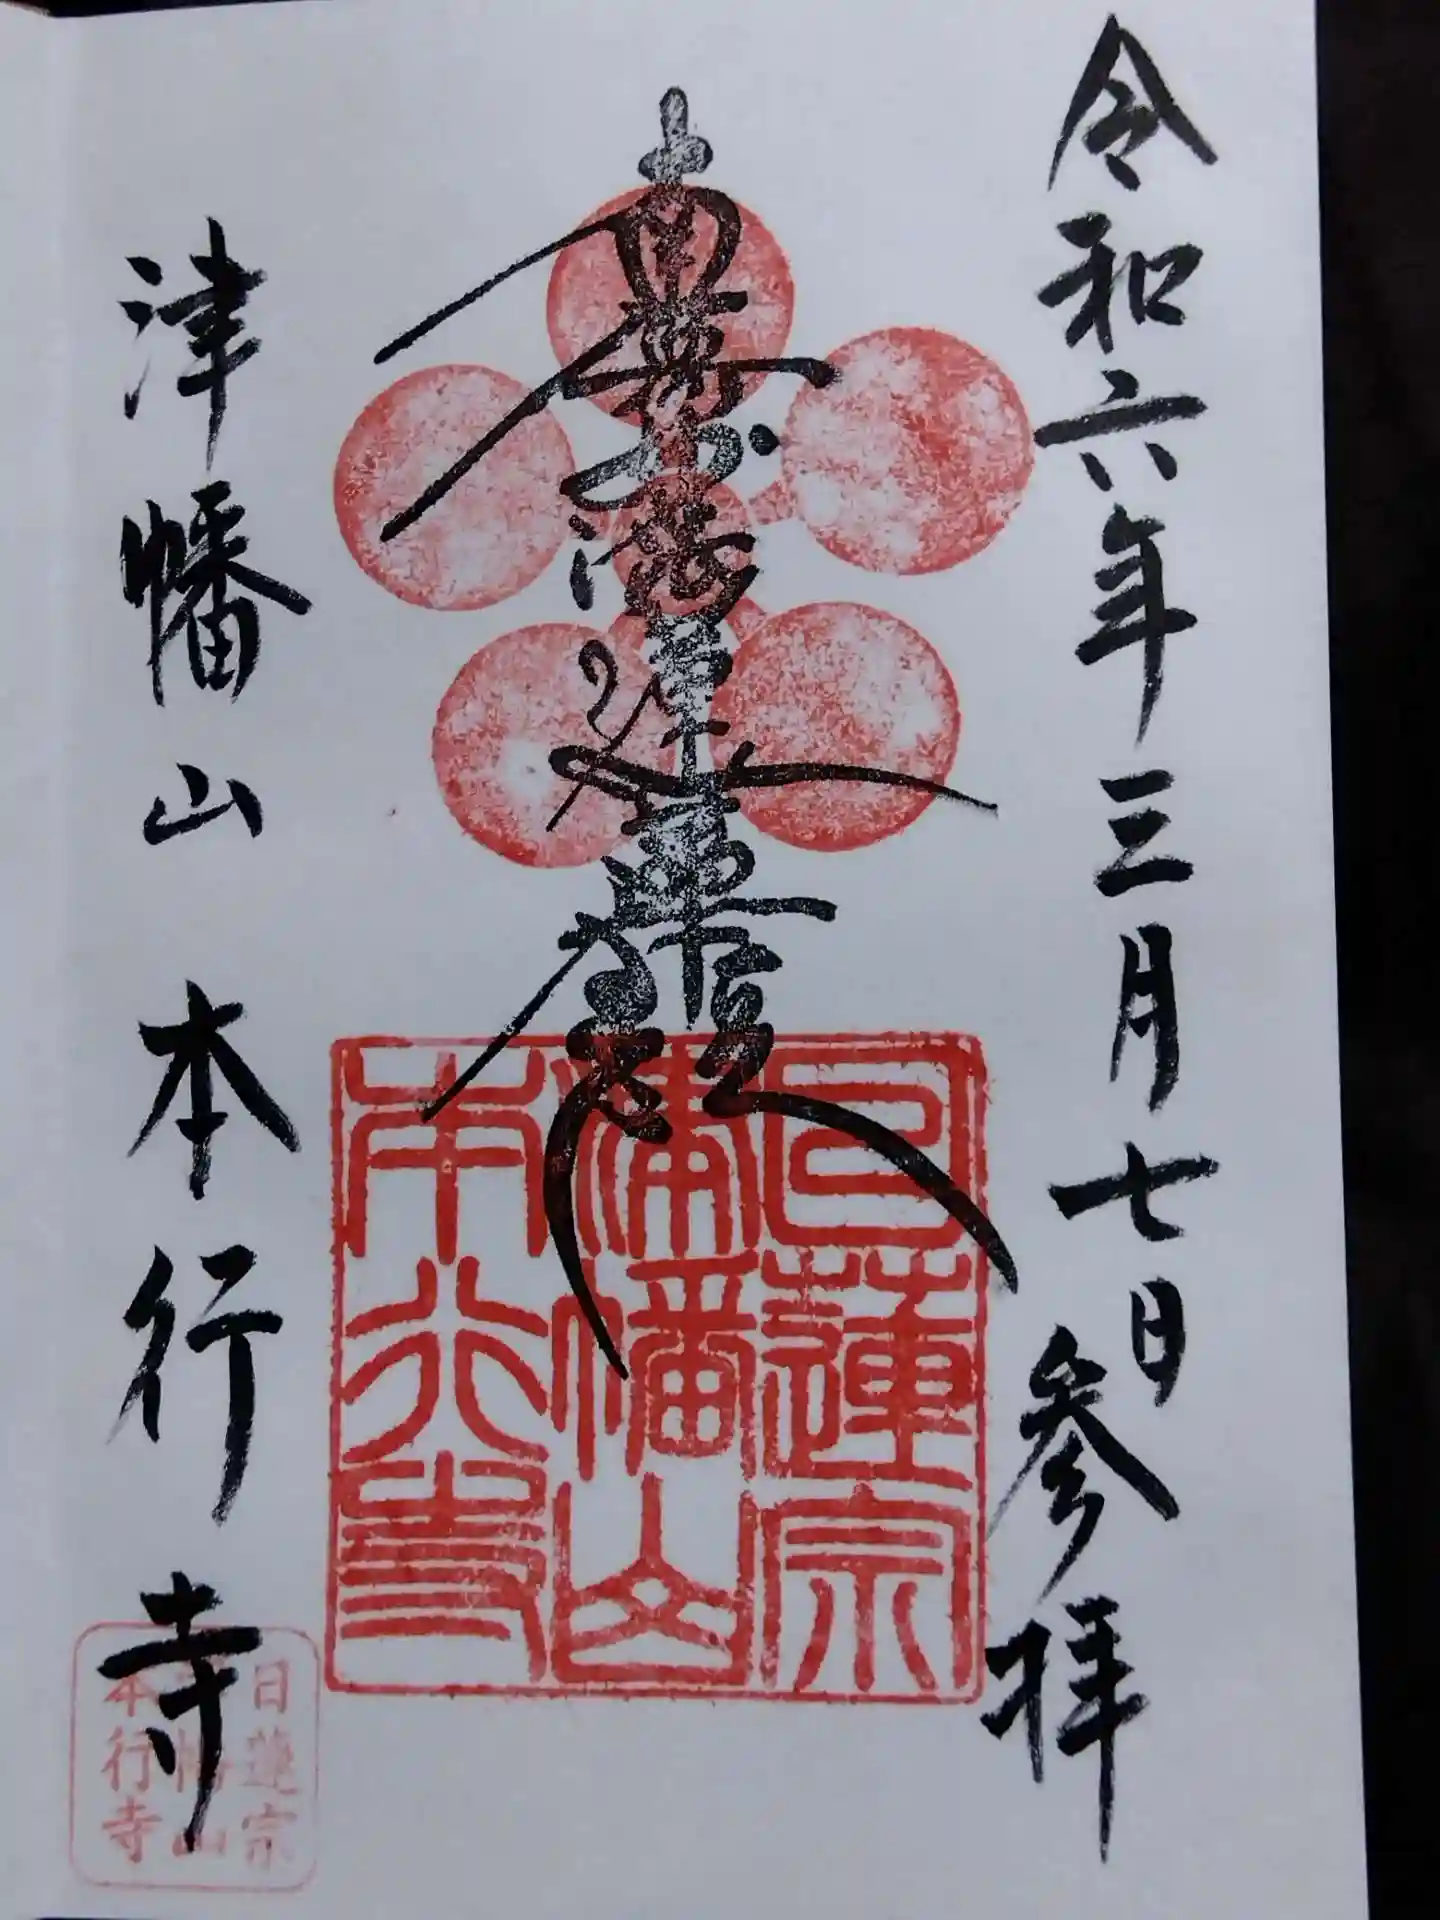 令和六年三月七日 参拝
南無妙法蓮華経
日蓮宗
津幡山
本行寺
津幡山 本行寺
日蓮宗
津幡山
本行寺